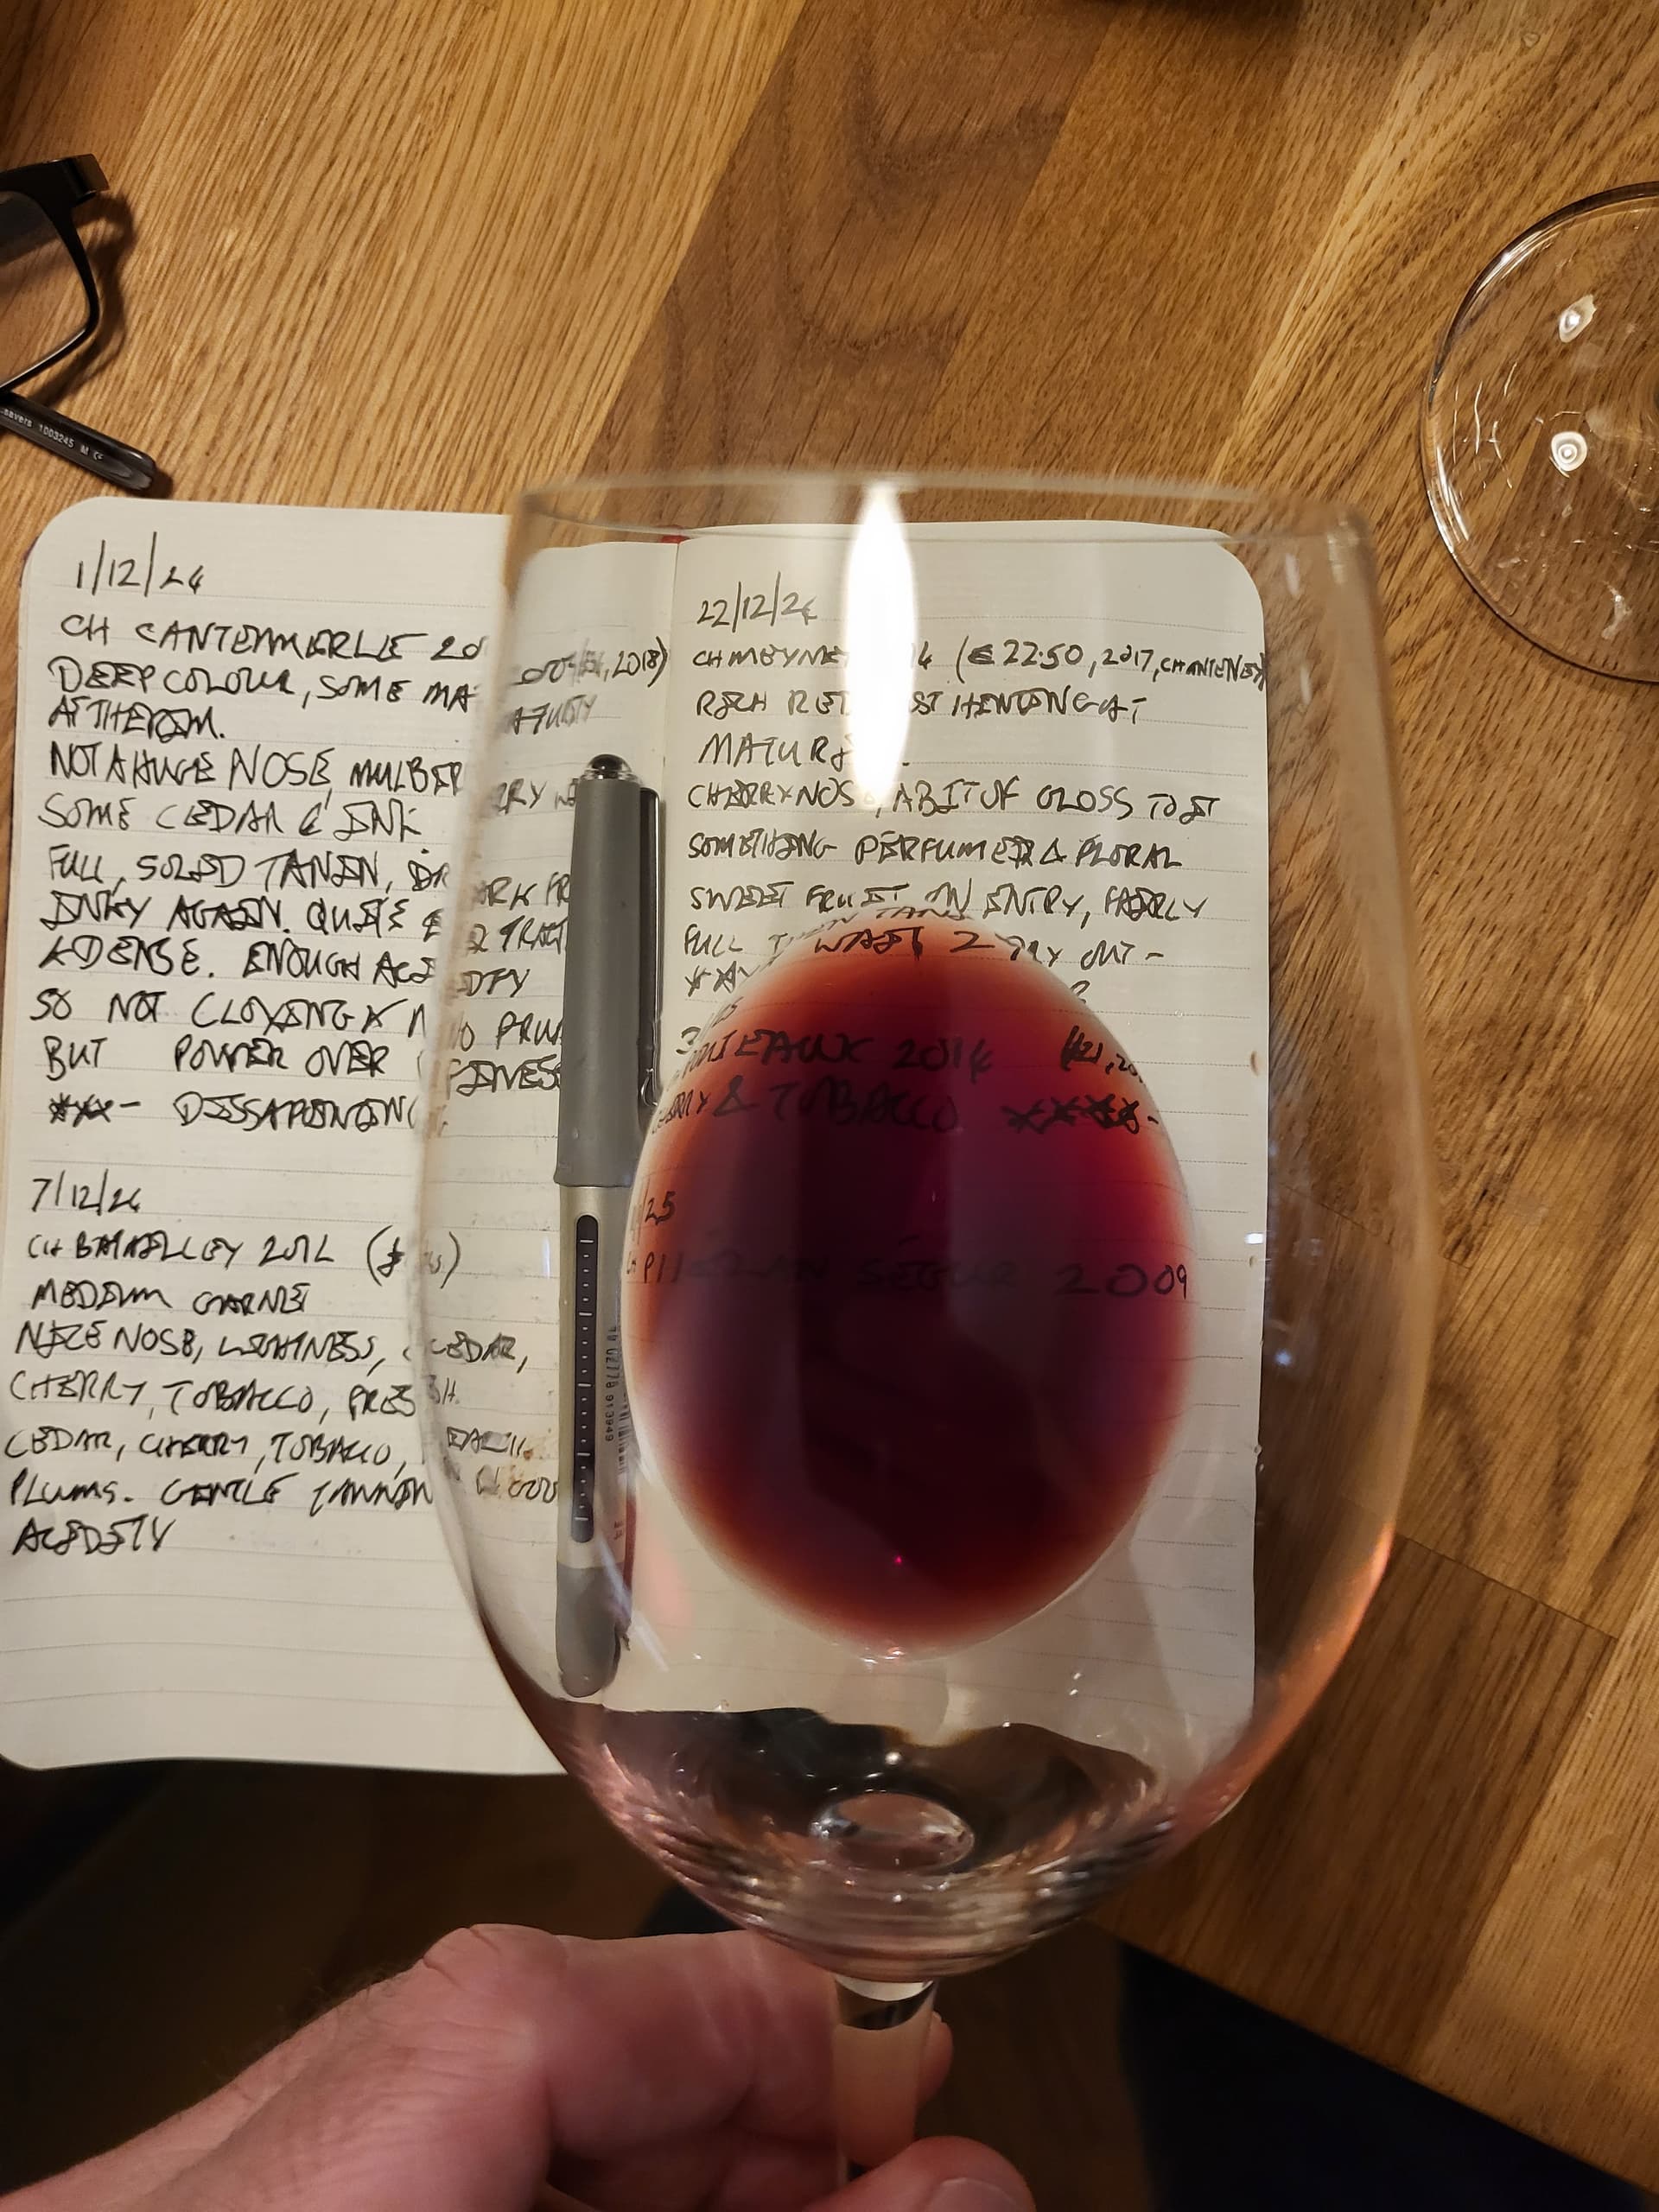 savers 1003245 M CE
1/12/24
CH CANTEMERLE 20
DEEP COLOUR, SOME MA
AT THE RIM.
NOT A HUGE NOSE, MULBERRY
SOME CEDAR & INK
FULL, SOLID TANIN, DARK FR
INKY AGAIN. QUITE EXTRACT
& DENSE. ENOUGH ACIDITY
SO NOT CLOYING & NO PRU
BUT POWER OVER FINESS
***- DISSAPOINTING
7/12/24
CH 201
MEDIUM GARNET
NICE NOSE, LIGHTNESS, CEDAR,
CHERRY, TOBACCO, FRESH.
CEDAR, CHERRY, TOBACCO,
PLUMS. GENTLE TANNIN GOOD
ACIDITY
22/12/24
CH MEYNEY 14 (€22.50, 2017, CHANTENEY)
RICH RED JUST HINTING AT
MATURITY.
CHERRY NOSE, A BIT OF GLOSS TO IT
SOMETHING PERFUMED & FLORAL
SWEET FRUIT ON ENTRY, FAIRLY
FULL
2014
& TOBACCO ****-
/25
SÉGUR 2009